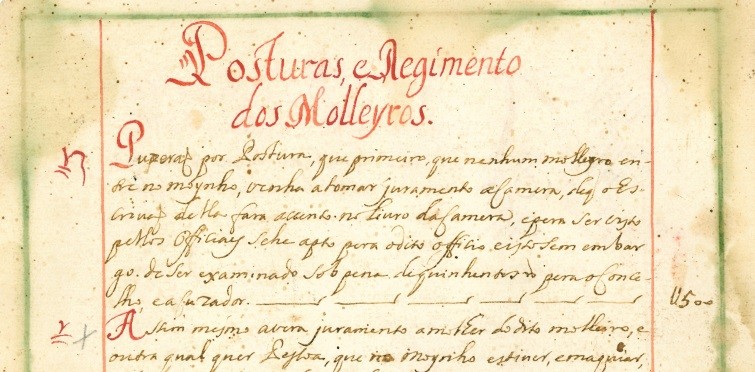 Posturas, e Regimento
dos Molleyros.
Puzeraõ por Postura, que primeiro, que nenhum molleyro en-
tre no moynho, venha a tomar juramento a Camera, de q o Es-
crivaõ della fara accento no livro da Camera, e pera ser visto
pellos Officiaes se he apto pera o dito officio, e isto sem embar
go de ser examinado sob pena de quinhentos rs pera o Conce-
lho, e acuzador.
U500
2
Assim mesmo avera juramento a molher do dito molleiro, e
outra qual quer Pessoa, que no moynho estiver, e maquiar,